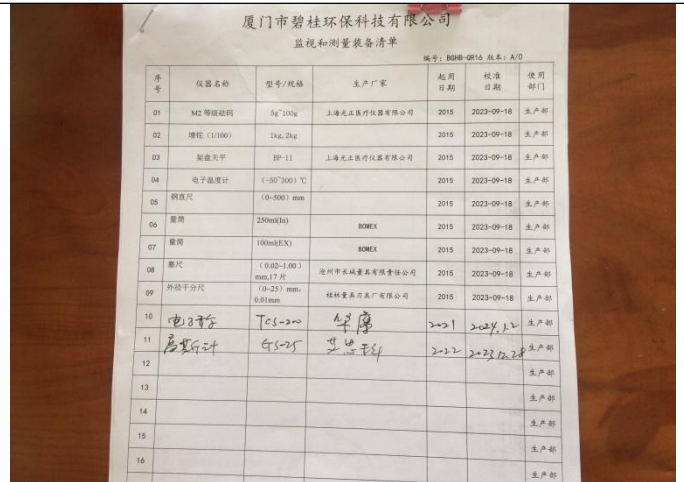 厦门市碧桂环保科技有限公司
监视和测量装备清单
编号: BGHB-QR16 版本: A/0
序号 仪器名称 型号/规格 生产厂家 起用日期 校准日期 使用部门
01 M2 等级砝码 5g~100g 上海光正医疗仪器有限公司 2015 2023-09-18 生产部
02 增铊（1/100） 1kg, 2kg 2015 2023-09-18 生产部
03 架盘天平 BP-11 上海光正医疗仪器有限公司 2015 2023-09-18 生产部
04 电子温度计 (-50~300) ℃ 2015 2023-09-18 生产部
05 钢直尺 (0-500) mm 2015 2023-09-18 生产部
06 量筒 250ml(In) BOMEX 2015 2023-09-18 生产部
07 量筒 100ml(EX) BOMEX 2015 2023-09-18 生产部
08 塞尺 (0.02-1.00) mm,17 片 沧州市长城量具有限责任公司 2015 2023-09-18 生产部
09 外径千分尺 (0-25) mm, 0.01mm 桂林量具刃具厂有限公司 2015 2023-09-18 生产部
10 电子秤 TCS-200 2021 2024.1.2 生产部
11 高斯计 GS-25 2022 2023.12.28 生产部
12 生产部
13 生产部
14 生产部
15 生产部
16 生产部